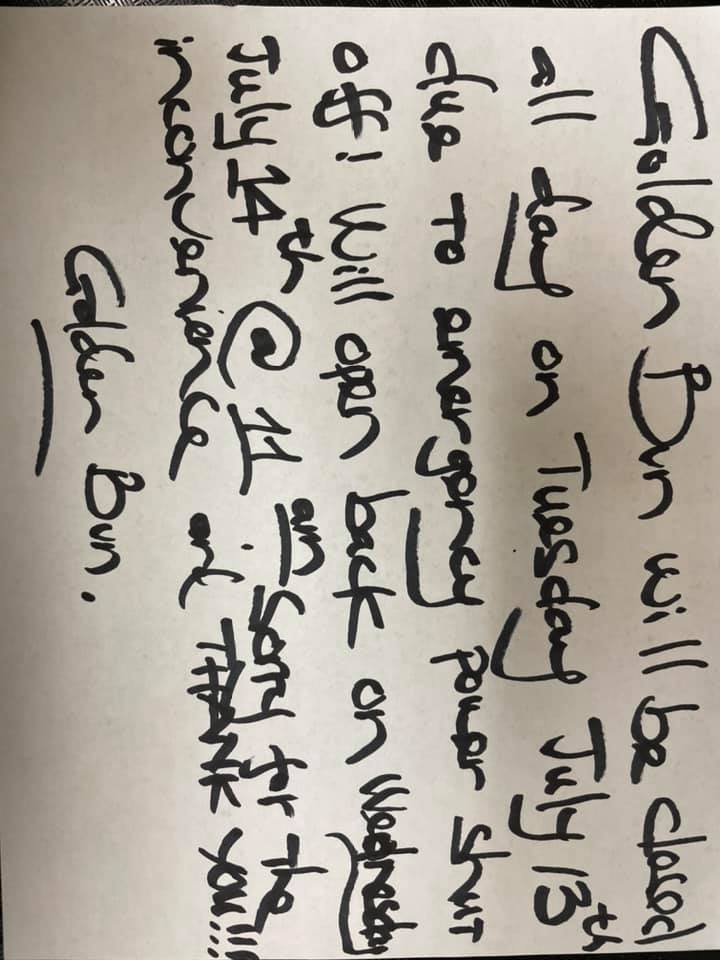 Golden Bun will be closed
all day on Tuesday July 13th
due To emergency power shut
off! Will open back on Wednesday
July 14th @ 11 am Sorry for The
inconvenience and THANK you!!!
Golden Bun.